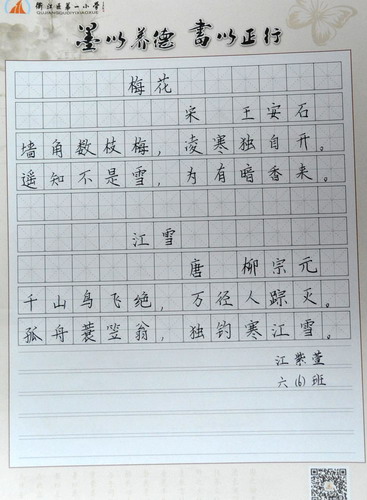 衢江区第一小学
墨以养德 書以正行
梅花
宋 王安石
墙角数枝梅，凌寒独自开。
遥知不是雪，为有暗香来。
江雪
唐 柳宗元
千山鸟飞绝，万径人踪灭。
孤舟蓑笠翁，独钓寒江雪。
江紫萱
六(6)班